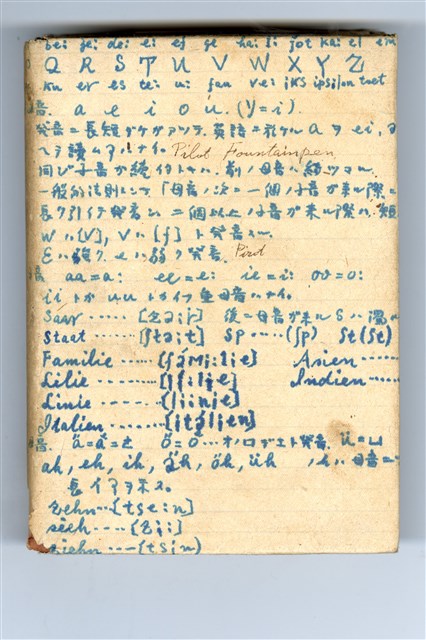 be: ge: de: ei ef ge ha: i: jot ka: el em
Q R S T U V W X Y Z
ku er es te: u: fau ve: iks ipsilon tset
音. a e i o u. (y=i).
発音ニ長短ダケガアツテ. 英語ニ於ケル a ヲ ei,
ヘヲ読ムアルナイ. Pilot Fountainpen
同ジ子音が続イトキハ. 前ノ母音ハ
一般的法則トシテ「母音ノ次ニ一個ノ子音が来ル際ニ
長ク引イテ発音シ 二個以上ノ子音が来ル際ハ. 短
W ハ [V], V ハ [f] ト発音スル.
Eハ強ク. eハ弱ク発音. Pirot
音 aa=a: ee=e: ie=i: oo=o:
ii トカ uu トカイフ重母音ハナイ.
Saar ..... 後ニ母音が来ル S ハ濁
Staat ..... [ʃta:t] Sp ..... (ʃp) St (ʃt)
Familie ...... [fami:lie] Asien ......
Lilie ........ [li:lie] Indien ......
Linie ....... [li:nie]
Italien ........ [itá:lien]
音. ä=a=e ö=o ... ü=u
ah, eh, ih, äh, öh, üh , ハ母音ニ
長イアヲ示ス.
zehn ... [tse:n]
sieh .... [zi:]
ziehn .... [tsi:n]